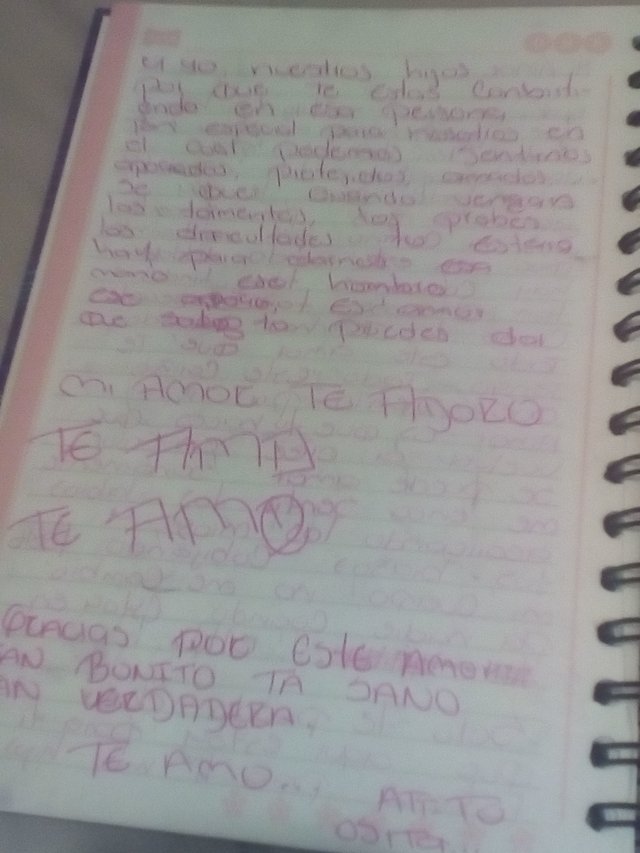 y yo, nuestros hijos
por que te estas convirti
endo en esa persona
tan especial para nosotros en
el cual podemos sentirnos
apoyados, protejidos, amados
se que cuando vengan
las tormentas, las
las dificultades tu estaras
hay para darnos esa
mano ese hombro
ese apoyo, el amor
que solo tu puedes dar
Mi AMOR TE ADORO
TE AMO
TE AMO
GRACIAS POR ESTE AMOR
AN BONITO TA SANO
AN VERDADERA.
TE AMO...
ATTTO
OSITA